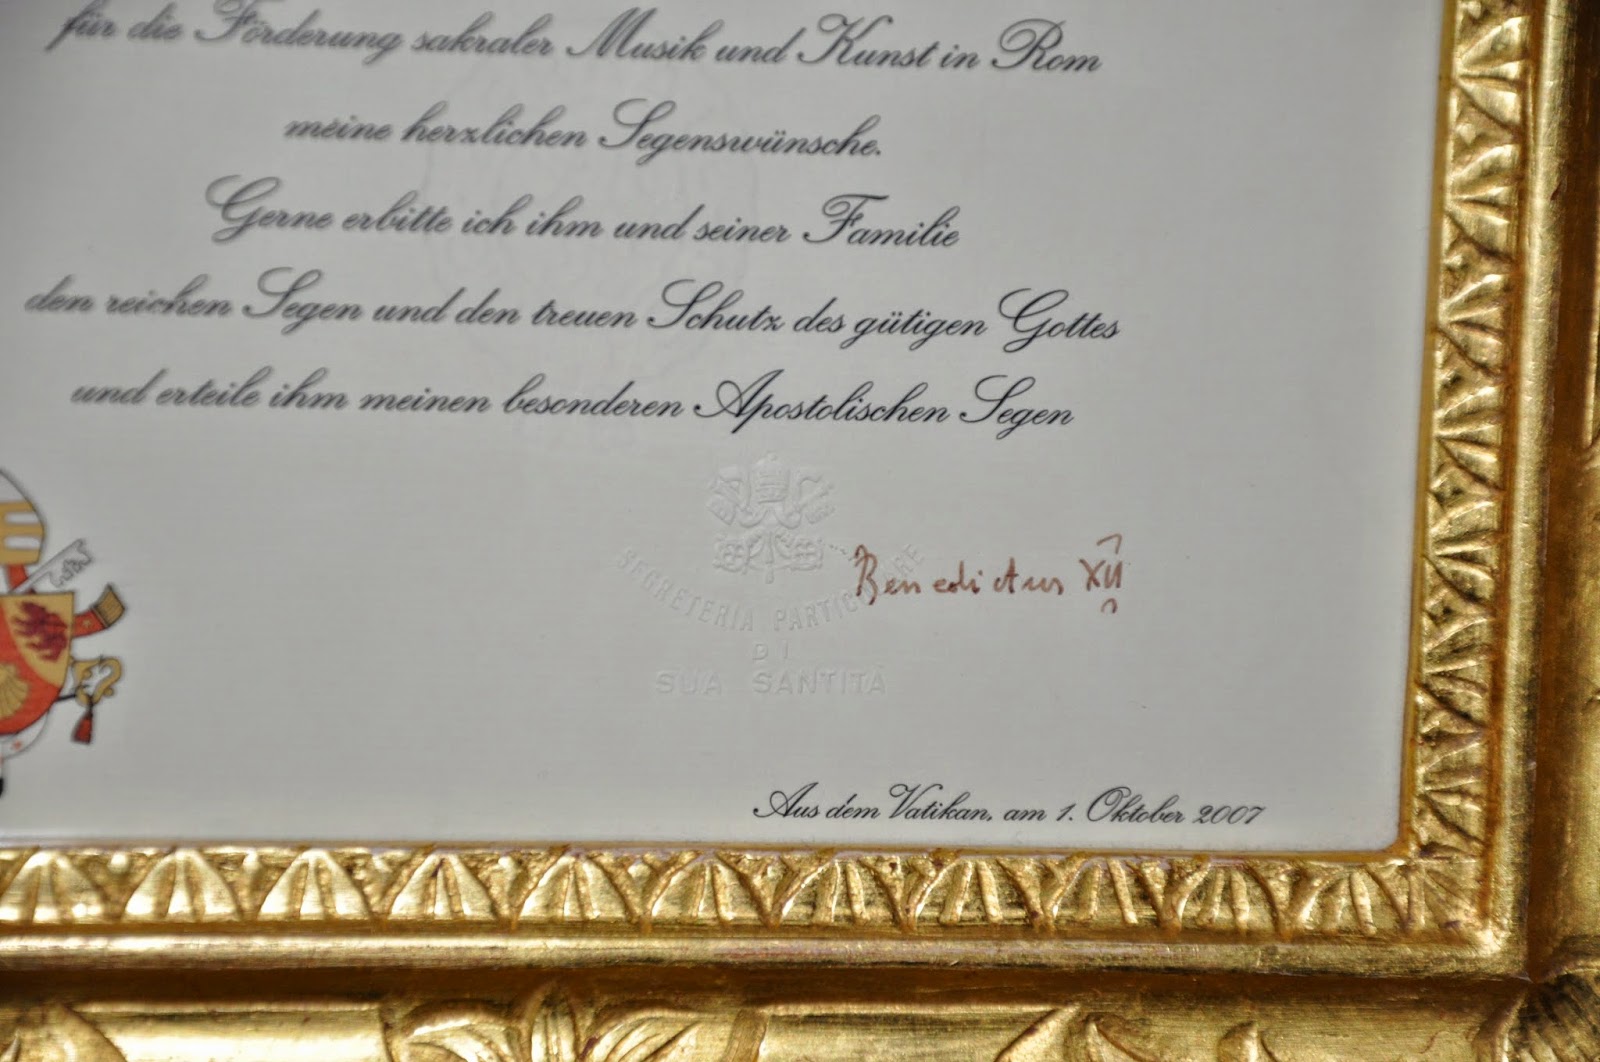 für die Förderung sakraler Musik und Kunst in Rom
meine herzlichen Segenswünsche.
Gerne erbitte ich ihm und seiner Familie
den reichen Segen und den treuen Schutz des gütigen Gottes
und erteile ihm meinen besonderen Apostolischen Segen
SEGRETERIA PARTICOLARE
DI
SUA SANTITÀ
Benedictus XVI
Aus dem Vatikan, am 1. Oktober 2007